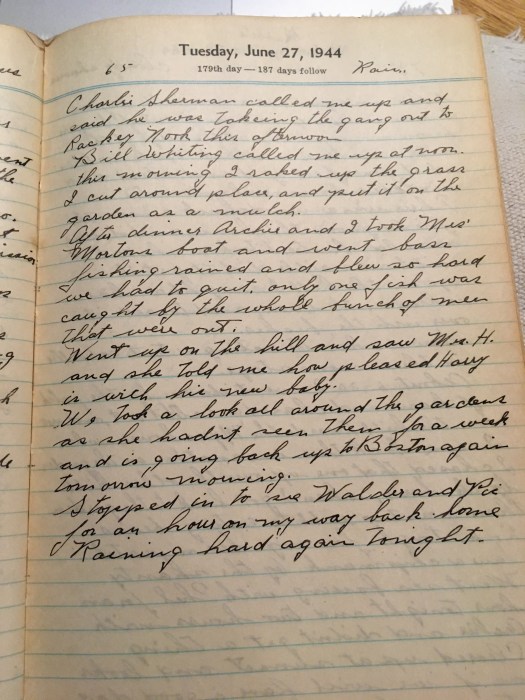 Tuesday, June 27, 1944
65 179th day — 187 days follow Rain.
Charlie Sherman called me up and
said he was takeing the gang out to
Rackey Nook this afternoon
Bill Whiting called me up at noon.
this morning I raked up the grass
I cut around place, and put it on the
garden as a mulch.
After dinner Archie and I took Mrs'
Mortons boat and went bass
fishing rained and blew so hard
we had to quit, only one fish was
caught by the whole bunch of men
that were out.
Went up on the hill and saw Mrs. H.
and she told me how pleased Harry
is with his new baby.
We took a look all around the gardens
as she hadn't seen them for a week
and is going back up to Boston again
tomorrow morning.
Stopped in to see Walder and Pie
for an hour on my way back home
Raining hard again tonight.